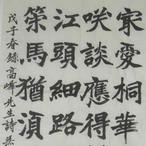 家愛桐華
咲談應得
江頭細路
策馬猶湏
戊子春錄高峰先生詩